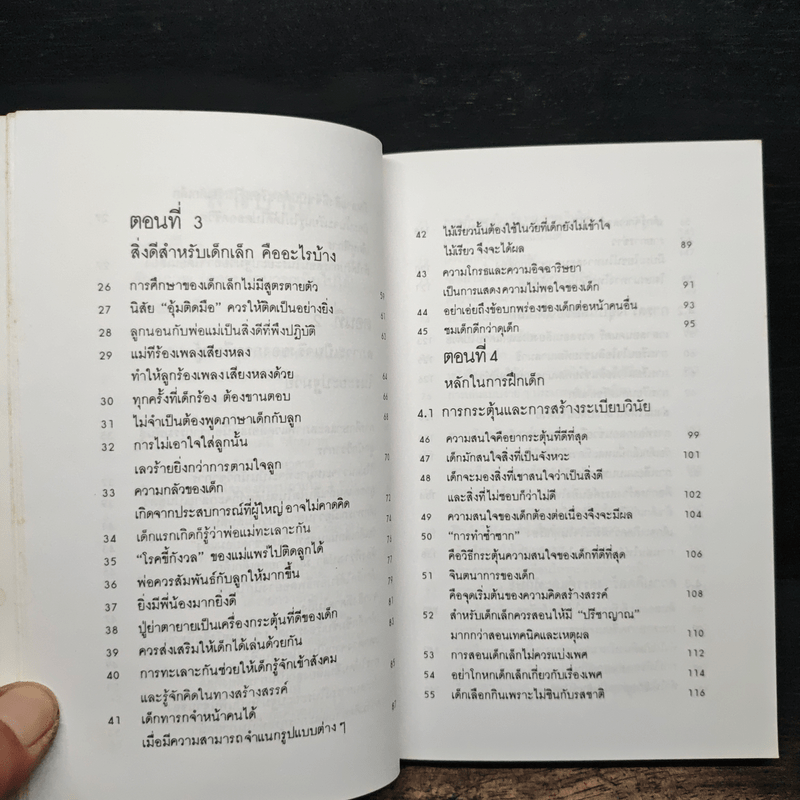 ตอนที่ 3
สิ่งดีสำหรับเด็กเล็ก คืออะไรบ้าง
26 การศึกษาของเด็กเล็กไม่มีสูตรตายตัว 59
27 นิสัย “อุ้มติดมือ” ควรให้ติดเป็นอย่างยิ่ง 61
28 ลูกนอนกับพ่อแม่เป็นสิ่งดีที่พึงปฏิบัติ
29 แม่ที่ร้องเพลงเสียงหลง
ทำให้ลูกร้องเพลงเสียงหลงด้วย 64
30 ทุกครั้งที่เด็กร้อง ต้องขานตอบ 66
31 ไม่จำเป็นต้องพูดภาษาเด็กกับลูก 68
32 การไม่เอาใจใส่ลูกนั้น
เลวร้ายยิ่งกว่าการตามใจลูก 70
33 ความกลัวของเด็ก
เกิดจากประสบการณ์ที่ผู้ใหญ่อาจไม่คาดคิด
34 เด็กแรกเกิดก็รู้ว่าพ่อแม่ทะเลาะกัน
35 “โรคขี้กังวล” ของแม่แพร่ไปติดลูกได้ 77
36 พ่อควรสัมพันธ์กับลูกให้มากขึ้น 79
37 ยิ่งมีพี่น้องมากยิ่งดี
38 ปู่ย่าตายายเป็นเครื่องกระตุ้นที่ดีของเด็ก
39 ควรส่งเสริมให้เด็กได้เล่นด้วยกัน
40 การทะเลาะกันช่วยให้เด็กรู้จักเข้าสังคม
และรู้จักคิดในทางสร้างสรรค์
41 เด็กทารกจำหน้าคนได้
เมื่อมีความสามารถจำแนกรูปแบบต่าง ๆ
42 ไม้เรียวนั้นต้องใช้ในวัยที่เด็กยังไม่เข้าใจ
ไม้เรียว จึงจะได้ผล 89
43 ความโกรธและความอิจฉาริษยา
เป็นการแสดงความไม่พอใจของเด็ก 91
44 อย่าเอ่ยถึงข้อบกพร่องของเด็กต่อหน้าคนอื่น 93
45 ชมเด็กดีกว่าดุเด็ก 95
ตอนที่ 4
หลักในการฝึกเด็ก
4.1 การกระตุ้นและการสร้างระเบียบวินัย
46 ความสนใจคือยากระตุ้นที่ดีที่สุด 99
47 เด็กมักสนใจสิ่งที่เป็นจังหวะ 101
48 เด็กจะมองสิ่งที่เขาสนใจว่าเป็นสิ่งดี
และสิ่งที่ไม่ชอบก็ว่าไม่ดี 102
49 ความสนใจของเด็กต้องต่อเนื่องจึงจะมีผล 104
50 “การทำซ้ำซาก”
คือวิธีกระตุ้นความสนใจของเด็กที่ดีที่สุด 106
51 จินตนาการของเด็ก
คือจุดเริ่มต้นของความคิดสร้างสรรค์ 108
52 สำหรับเด็กเล็กควรสอนให้มี “ปรีชาญาณ”
มากกว่าสอนเทคนิคและเหตุผล 110
53 การสอนเด็กเล็กไม่ควรแบ่งเพศ 112
54 อย่าโกหกเด็กเล็กเกี่ยวกับเรื่องเพศ 114
55 เด็กเลือกกินเพราะไม่ชินกับรสชาติ 116